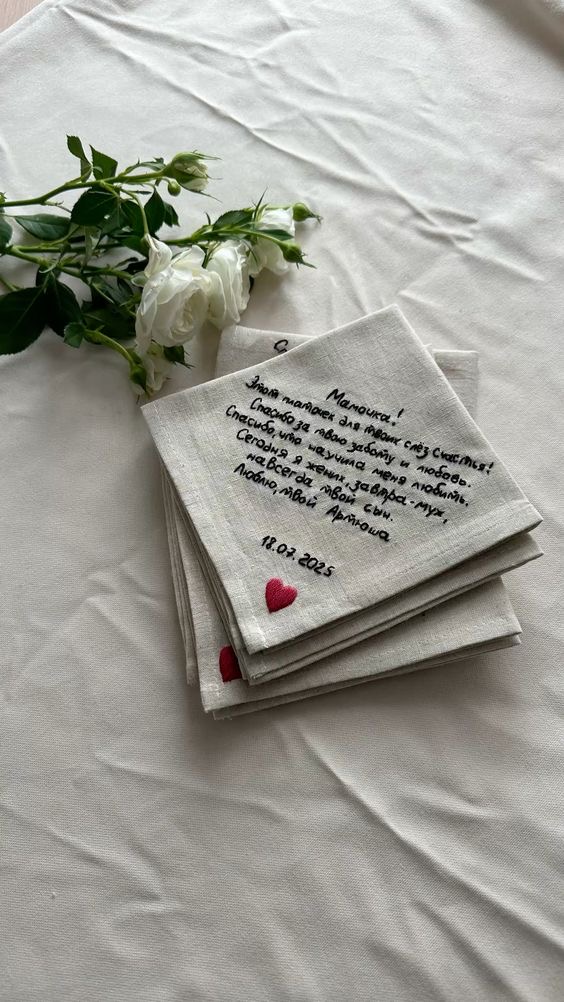 Мамочка!
Этот платочек для твоих слёз счастья!
Спасибо за твою заботу и любовь.
Спасибо, что научила меня любить.
Сегодня я жених, завтра - муж,
навсегда твой сын.
Люблю, твой Артюша
18.07.2025